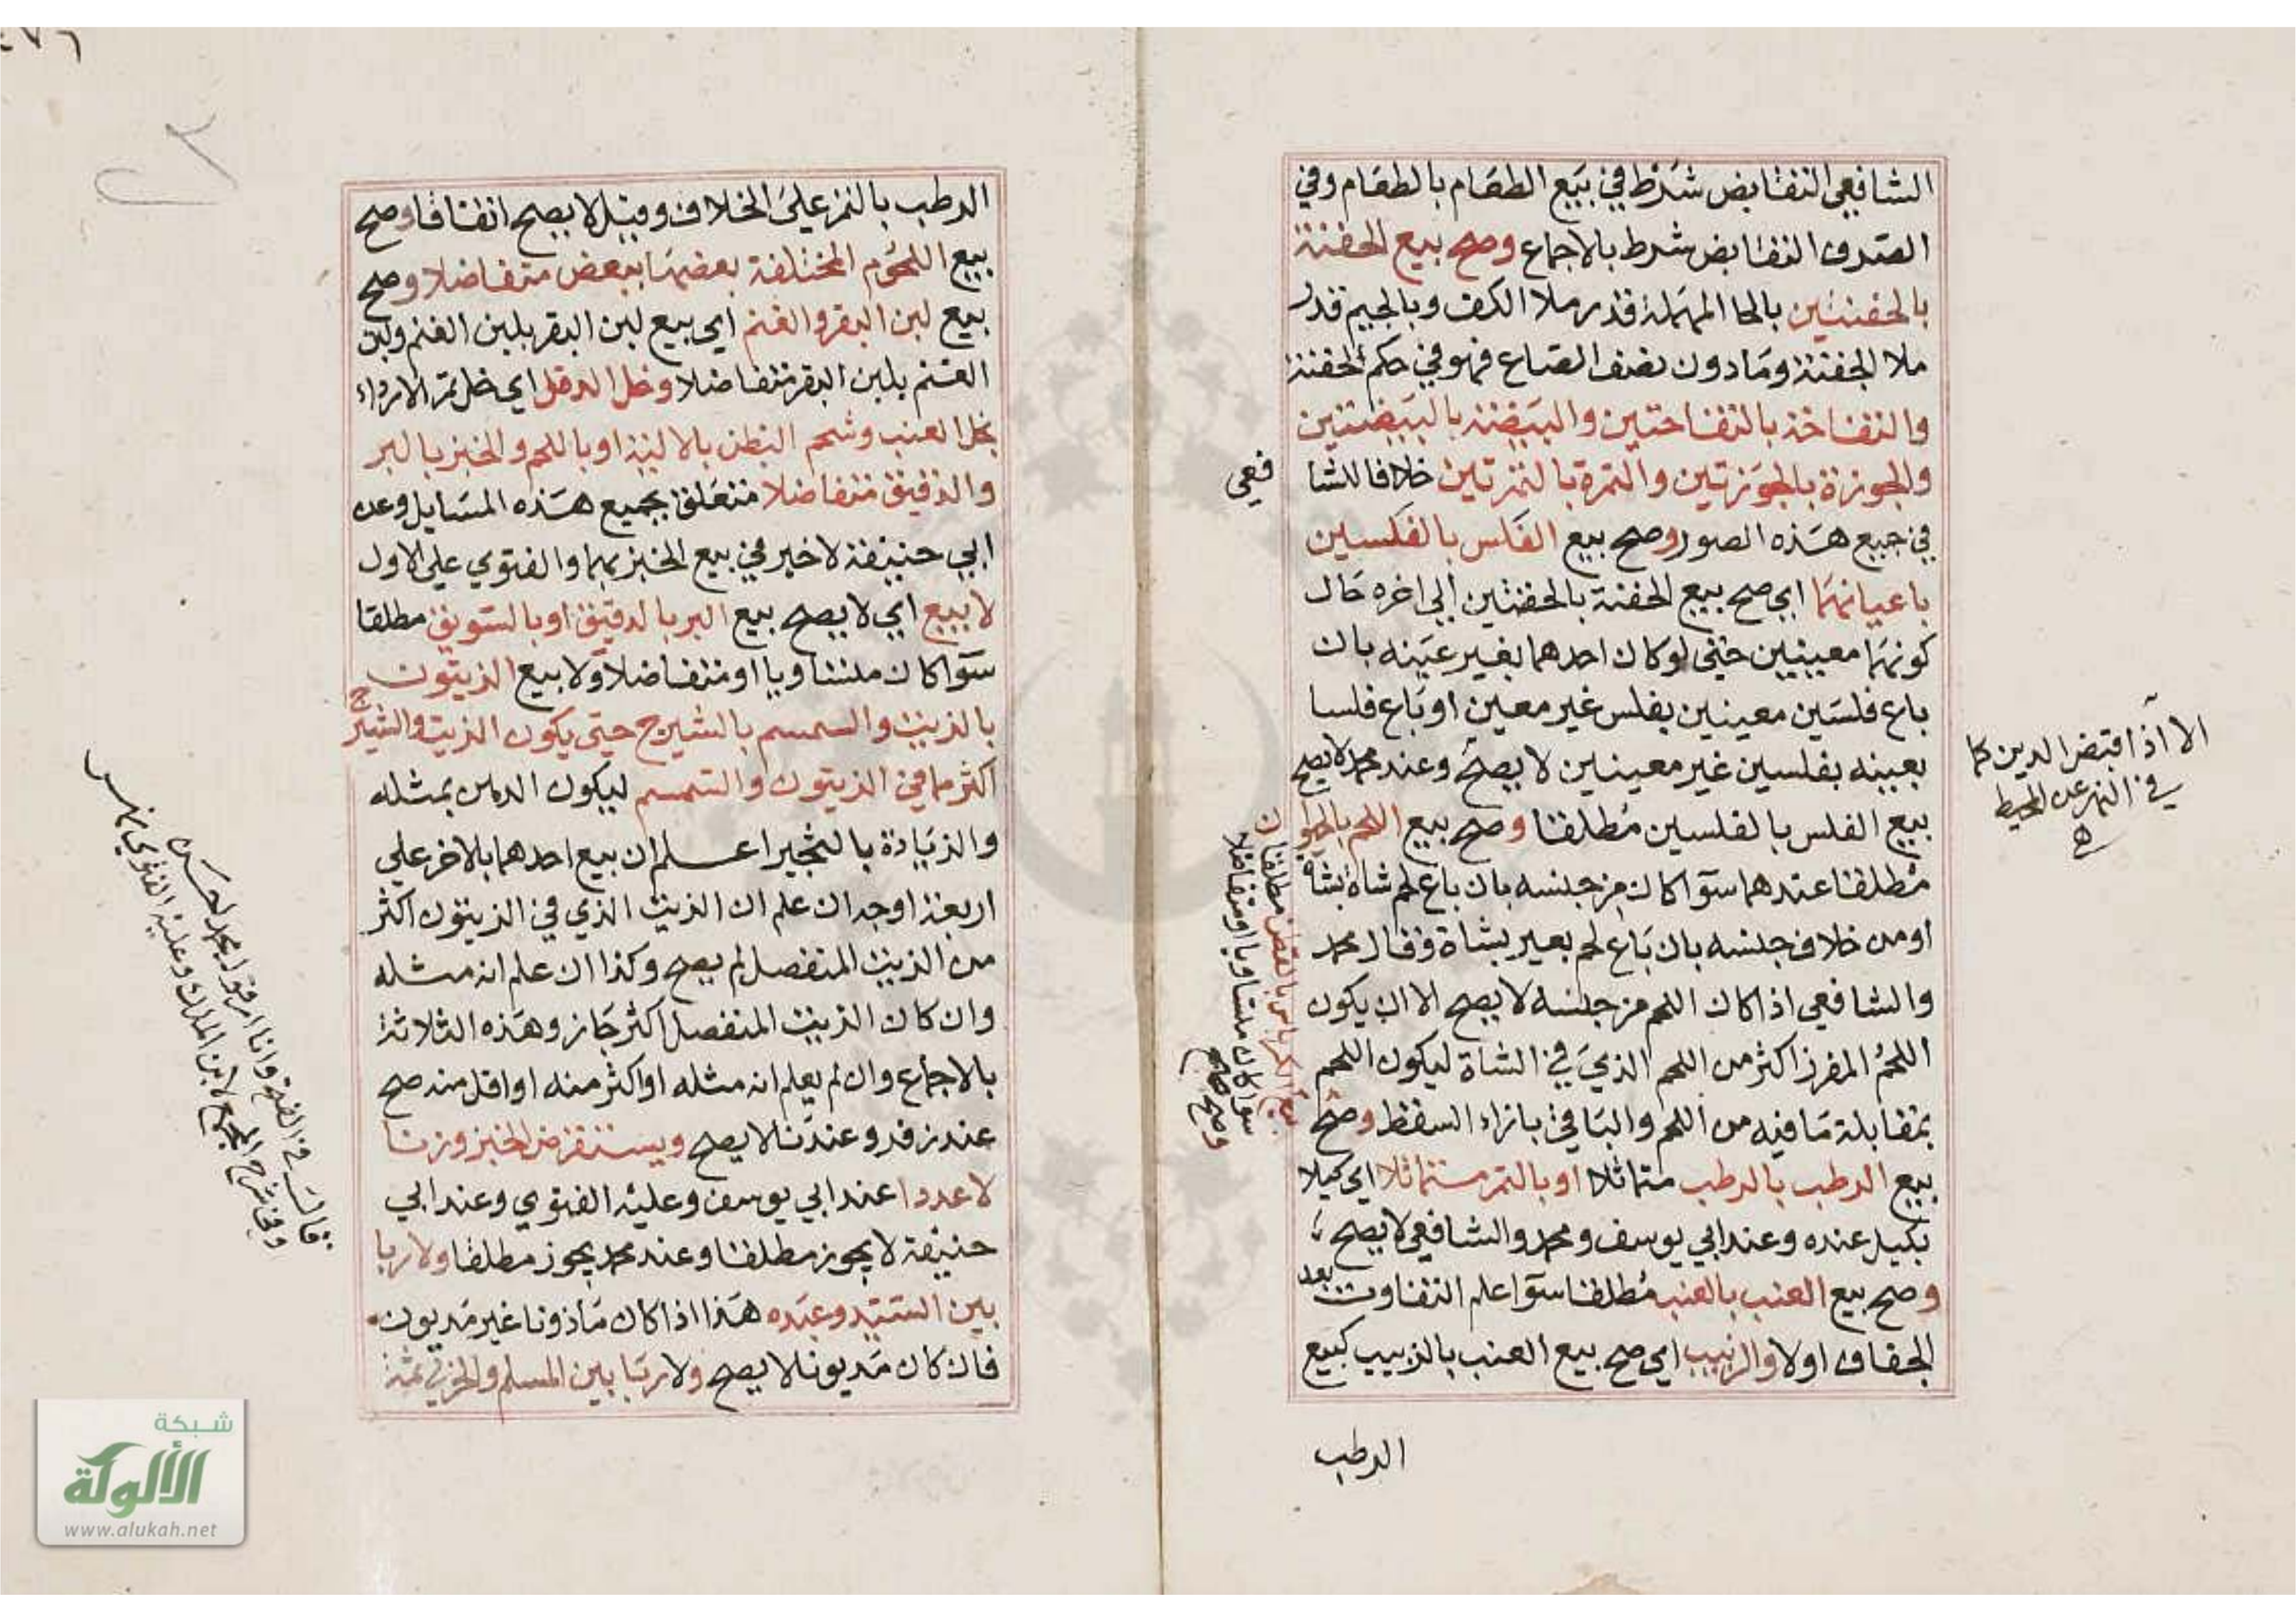 الشافعي التقابض شرط في بيع الطعام بالطعام وفي
الصرف التقابض شرط بالاجماع وصح بيع الحفنة
بالحفنتين بالحا المهملة قدر ملا الكف وبالجيم قدر
ملا الجفنة وما دون نصف الصاع فهو في حكم الحفنة
والتفاحة بالتفاحتين والبيضة بالبيضتين
والجوزة بالجوزتين والتمرة بالتمرتين خلافا للشا
فعي
في جميع هذه الصور وصح بيع الفلس بالفلسين
باعيانهما اي صح بيع الحفنة بالحفنتين الي اخره حال
كونهما معينين حتي لو كان احدهما بغير عينه بان
باع فلسين معينين بفلس غير معين او باع فلسا
بعينه بفلسين غير معينين لا يصح وعند محمد لا يصح
بيع الفلس بالفلسين مطلقا وصح بيع اللحم بالحيوان
مطلقا عندهما سوآ كان من جنسه بان باع لحم شاة بشاة
او من خلاف جنسه بان باع لحم بعير بشاة وقال محمد
والشافعي اذا كان اللحم من جنسه لا يصح الا ان يكون
اللحم المفرز اكثر من اللحم الذي في الشاة ليكون اللحم
بمقابلة ما فيه من اللحم والباقي بازاء السقط وصح
بيع الرطب بالرطب متماثلا او بالتمر متماثلا اي كيلا
بكيل عنده وعند ابي يوسف ومحمد والشافعي لا يصح
وصح بيع العنب بالعنب مطلقا سوآ علم التفاوت بعد
الجفاف اولا والزبيب اي صح بيع العنب بالزبيب كبيع
الرطب
الا اذا اقبض الدين كما
في النهر عن المحيط
بيع الكرباس بالقطن مطلقا
سوآ كان متساويا او متفاضلا
وصح صح
الرطب بالتمر علي الخلاف وقيل لا يصح اتفاقا وصح
بيع اللحوم المختلفة بعضها ببعض متفاضلا وصح
بيع لبن البقر والغنم اي بيع لبن البقر بلبن الغنم ولبن
الغنم بلبن البقر متفاضلا وخل الدقل اي خل تمر الارداء
بخل العنب وشحم البطن بالالية او باللحم والخبز بالبر
والدقيق متفاضلا متعلق بجميع هذه المسايل وعن
ابي حنيفة لا خير في بيع الخبز بهما والفتوي علي الاول
لا بيع اي لا يصح بيع البر بالدقيق او بالسويق مطلقا
سوآ كان متساويا او متفاضلا ولا بيع الزيتون
بالزيت والسمسم بالشيرج حتي يكون الزيت والشيرج
اكثر مما في الزيتون والسمسم ليكون الدهن بمثله
والزيادة بالثجير اعلم ان بيع احدهما بالاخر علي
اربعة اوجه ان علم ان الزيت الذي في الزيتون اكثر
من الزيت المنفصل لم يصح وكذا ان علم انه مثله
وان كان الزيت المنفصل اكثر جاز وهذه الثلاثة
بالاجماع وان لم يعلم انه مثله او اكثر منه او اقل منه صح
عند زفر وعندنا لا يصح ويستقرض الخبز وزنا
لا عددا عند ابي يوسف وعليه الفتوي وعند ابي
حنيفة لا يجوز مطلقا وعند محمد يجوز مطلقا ولا ربا
بين السيد وعبده هذا اذا كان ماذونا غير مديون
فان كان مديونا لا يصح ولا ربا بين المسلم والحربي ثمة
قال في الفتح وانا اري قول محمد احسن
وفي شرح المجمع لابن الملك وعليه الفتوي نهر
شبكة
الألوكة
www.alukah.net